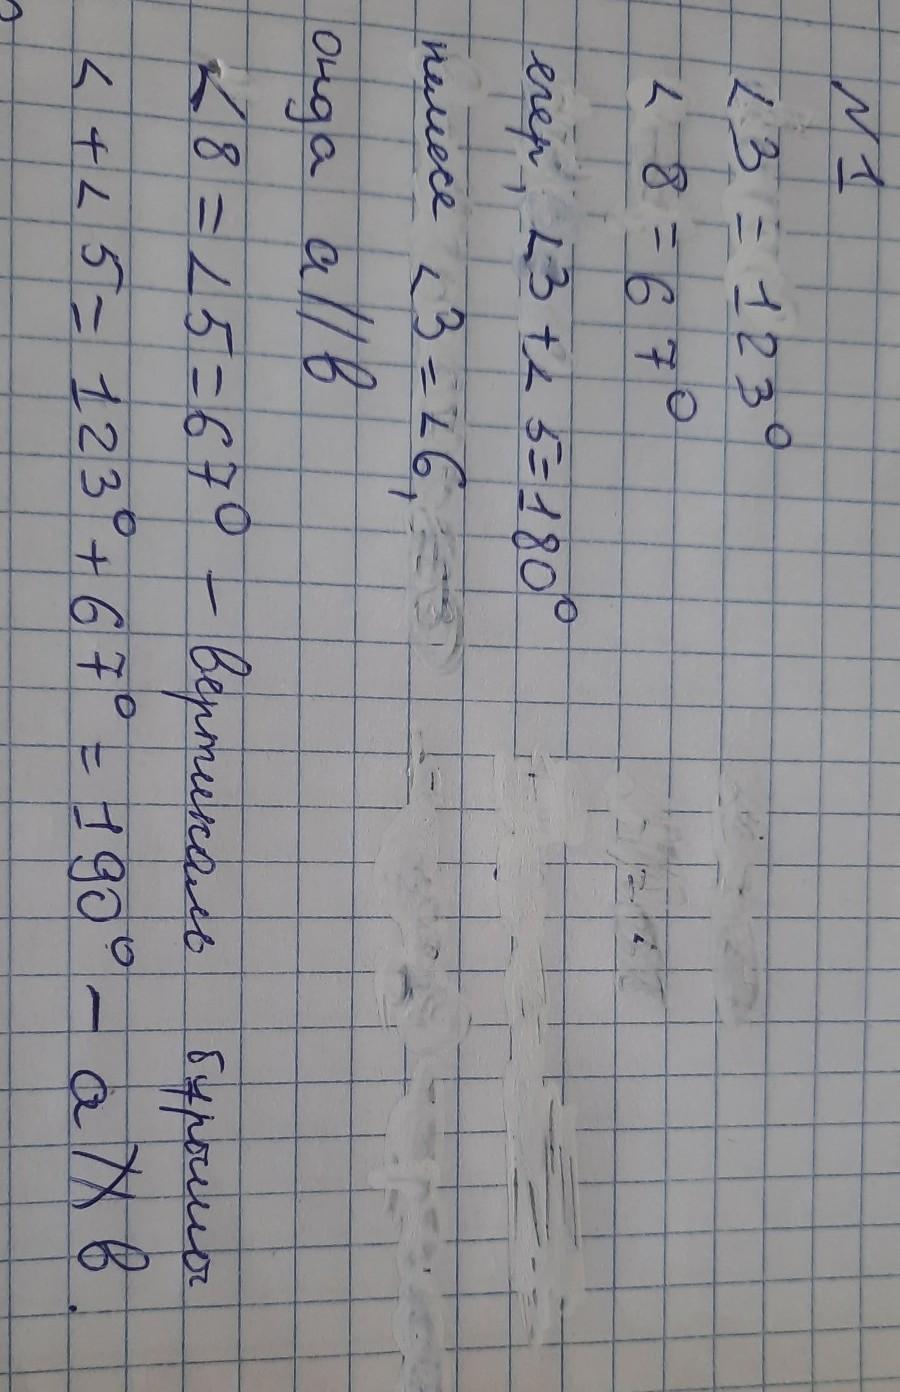 N1
∠3 = 123°
∠8 = 67°
егер, ∠3 + ∠5 = 180°
немесе ∠3 = ∠6,
онда a∥b
∠8 = ∠5 = 67° – вертикаль бұрышы
∠ + ∠5 = 123° + 67° = 190° – a ∦ b.